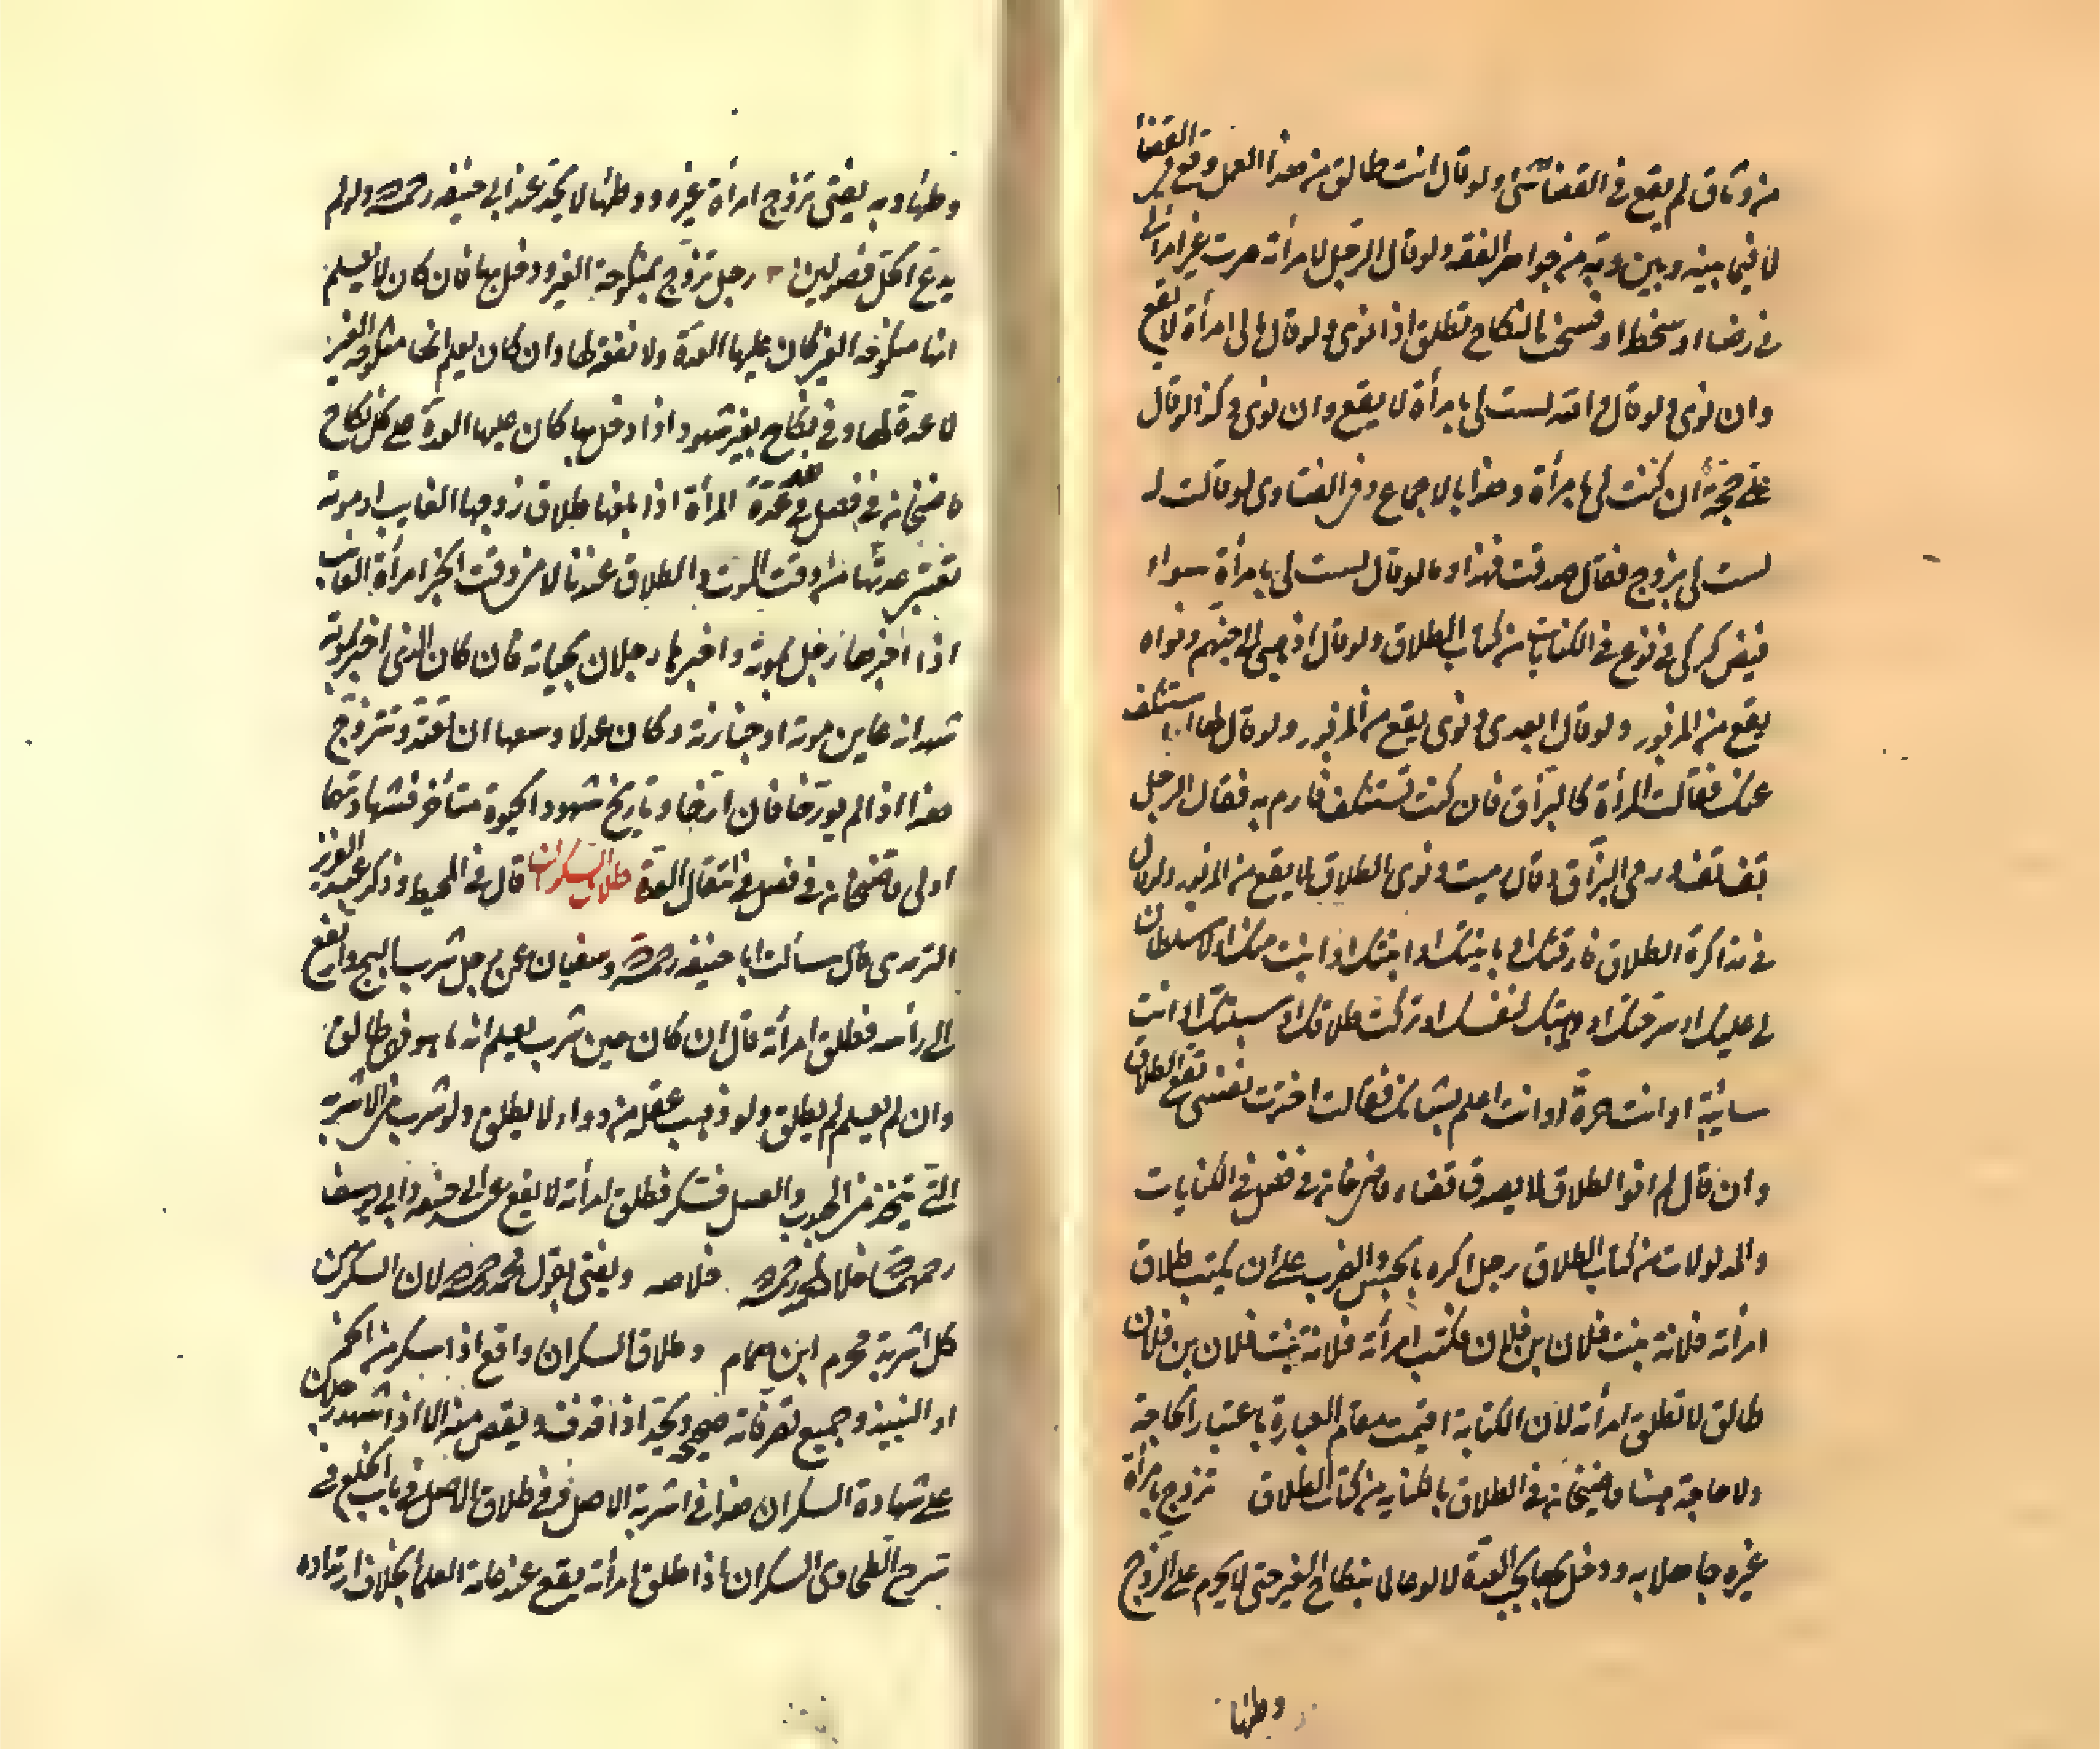 من وثاق لم يقع في القضاء شئ ولو قال انت طالق من هذا العمل وقع في القضا
لا فيما بينه وبين ربه من جواهر الفقه ولو قال الرجل لامرأته صرت غير امرأتي
في رضا او سخط او فسخت النكاح تطلق اذا نوى ولو قال ما لي امرأة لا يقع
وان نوى ولو قال والله لست لي بامرأة لا يقع وان نوى وكذا لو قال
علي حجة ان كنت لي بامرأة وهذا بالاجماع وفي الفتاوى لو قالت له
لست لي بزوج فقال صدقت فهذا وما لو قال لست لي بامرأة سواء
فيض كركي في نوع في الكنايات من كتاب الطلاق ولو قال اذهبي الى جهنم ونواه
يقع من المزبور ولو قال ابعدي ونوى يقع من المزبور ولو قال لها انا استنكف
عنك فقالت المرأة كالبزاق فان كنت تستنكف فارم به فقال الرجل
تف تف ورمى البزاق وقال رميت ونوى الطلاق لا يقع من المزبور ولو قال
في مذاكرة الطلاق فارقتك او باينتك او ابنتك او ابنت منك او لا سلطان
لي عليك او سرحتك او وهبتك لنفسك او تركت طلاقك او سبيلك او انت
سائبة او انت حرة او انت اعلم بشانك فقالت اخترت نفسي يقع الطلاق
وان قال لم انو الطلاق لا يصدق قضاء قاضيخان في فصل في الكنايات
والمدلولات من كتاب الطلاق رجل اكره بالحبس والضرب على ان يكتب طلاق
امرأته فلانة بنت فلان بن فلان فكتب امرأته فلانة بنت فلان بن فلان
طالق لا تطلق امرأته لان الكتابة اقيمت مقام العبارة باعتبار الحاجة
ولا حاجة هنا قاضيخان في الطلاق بالكتابه من كتاب الطلاق تزوج بامرأة
غيره جاهلا به ودخل بها يجب العدة لا لو عالما بنكاح الغير حتى لا يحرم على الزوج
وطئها
وطئها وبه يفتى تزوج امرأة غيره ووطئها لا يحد عند ابي حنيفه رحمه الله وان لم
يدع الحل فصولين رجل تزوج بمنكوحة الغير ودخل بها فان كان لا يعلم
انها منكوحه الغير كان عليها العدة ولا نفقه لها وان كان يعلم انها منكوحه الغير
لا عدة لها وفي نكاح بغير شهود اذا دخل بها كان عليها العدة على كل نكاح
قاضيخان في فصل في عدة المرأة اذا بلغها طلاق زوجها الغايب او موته
تعتبر عدتها من وقت الموت والطلاق عندنا لا من وقت الخبر امرأة الغايب
اذا اخبرها رجل بموته واخبرها رجلان بحياته فان كان الذي اخبر بموته
شهد انه عاين موته او جنازته وكان عدلا وسعها ان تعتد وتتزوج
هذا اذا لم يورخا فان ارخا وتاريخ شهود الحيوة متأخر فشهادتهما
اولى قاضيخان في فصل في انتقال العدة طلاق السكران قال في المحيط وذكر عبد العزيز
الترمدي قال سألت ابا حنيفه رحمه الله وسفيان عن رجل شرب البنج وارتفع
الى رأسه فطلق امرأته قال ان كان حين شرب يعلم انه ما هو فهي طالق
وان لم يعلم لم يطلق ولو ذهب عقله من دواء لا يطلق ولو شرب من الاشربة
التي تتخذ من الحبوب والعسل فسكر فطلق امرأته لا يقع عند ابي حنيفه وابي يوسف
رحمهما الله خلافا لمحمد رحمه الله خلاصه ويفتى بقول محمد رحمه الله لان السكر من
كل اشربة محرم ابن همام وطلاق السكران واقع اذا سكر من الخمر
او النبيذ وجميع تصرفاته صحيح ويحد اذا قذف ويقص منه الا اذا شهد رجلان
على شهادة السكران هذا في اشربة الاصل وفي طلاق الاصل في باب الخلع في
شرح الطحاوي السكران اذا طلق امرأته يقع عند عامة العلماء بخلاف ارتداده